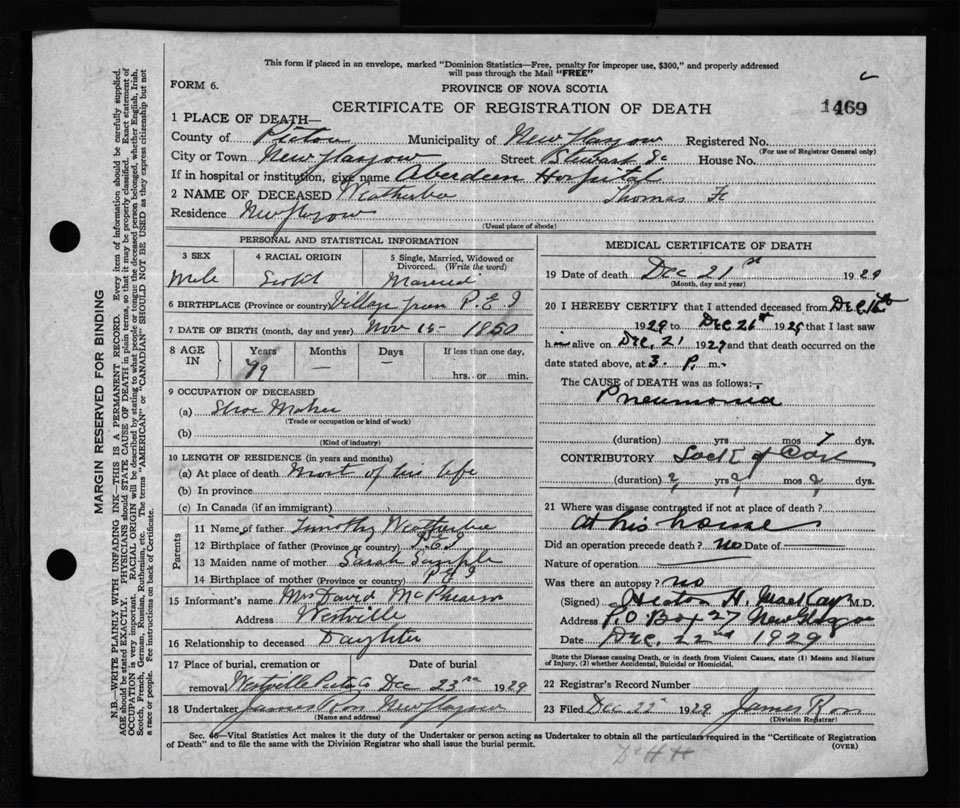 This form if placed in an envelope, marked "Dominion Statistics—Free, penalty for improper use, $300," and properly addressed
will pass through the Mail "FREE"
FORM 6.
PROVINCE OF NOVA SCOTIA
CERTIFICATE OF REGISTRATION OF DEATH
1469
1 PLACE OF DEATH—
County of Pictou Municipality of New Glasgow Registered No.
(For use of Registrar General only)
City or Town New Glasgow Street Stewart St House No.
If in hospital or institution, give name Aberdeen Hospital
2 NAME OF DECEASED Weatherbie Thomas
Residence New Glasgow
(Usual place of abode)
PERSONAL AND STATISTICAL INFORMATION
3 SEX
Male
4 RACIAL ORIGIN
Scotch
5 Single, Married, Widowed or
Divorced. (Write the word)
Married
6 BIRTHPLACE (Province or country) Village from P.E.I
7 DATE OF BIRTH (month, day and year) Nov 15 - 1850
8 AGE
IN
Years
79
Months
—
Days
If less than one day,
hrs. or min.
9 OCCUPATION OF DECEASED
(a) Shoe Maker
(Trade or occupation or kind of work)
(b)
(Kind of industry)
10 LENGTH OF RESIDENCE (in years and months)
(a) At place of death Most of his life
(b) In province
(c) In Canada (if an immigrant)
Parents
11 Name of father Timothy Weatherbie
12 Birthplace of father (Province or country) P.E.I
13 Maiden name of mother Sarah
14 Birthplace of mother (Province or country) P.E.I
15 Informant's name Mrs David McPhearson
Address Westville
16 Relationship to deceased Daughter
17 Place of burial, cremation or Date of burial
removal Westville Pictou Co Dec 23rd 1929
18 Undertaker James Ross New Glasgow
(Name and address)
MEDICAL CERTIFICATE OF DEATH
19 Date of death Dec 21st 1929
(Month, day and year)
20 I HEREBY CERTIFY that I attended deceased from Dec. 16th
1929 to Dec. 21st 1929 that I last saw
him alive on Dec. 21 1929 and that death occurred on the
date stated above, at 3. P. m.
The CAUSE of DEATH was as follows:
Pneumonia
(duration) yrs mos 7 dys.
CONTRIBUTORY Lack of Care
(duration) ? yrs ? mos ? dys.
21 Where was disease contracted if not at place of death?
At his house
Did an operation precede death? No Date of
Nature of operation
Was there an autopsy? No
(Signed) H. MacKay M.D.
Address P.O Box 27 New Glasgow
Date Dec. 22nd 1929
State the Disease causing Death, or in death from Violent Causes, state (1) Means and Nature
of Injury, (2) whether Accidental, Suicidal or Homicidal.
22 Registrar's Record Number
23 Filed Dec 22nd 1929 James Ross
(Division Registrar)
Sec. 46—Vital Statistics Act makes it the duty of the Undertaker or person acting as Undertaker to obtain all the particulars required in the "Certificate of Registration
of Death" and to file the same with the Division Registrar who shall issue the burial permit.
(OVER)
MARGIN RESERVED FOR BINDING
N.B.—WRITE PLAINLY WITH UNFADING INK—THIS IS A PERMANENT RECORD. Every item of information should be carefully supplied.
AGE should be stated EXACTLY. PHYSICIANS should STATE CAUSE OF DEATH in plain terms, so that it may be properly classified. Exact statement of
OCCUPATION is very important. RACIAL ORIGIN will be described by stating to what people or tongue the deceased person belonged, whether English, Irish,
Scotch, French, German, Russian, Ruthenian, etc. The terms "AMERICAN" or "CANADIAN" SHOULD NOT BE USED as they express citizenship but not
a race or people. Fee instructions on back of Certificate.